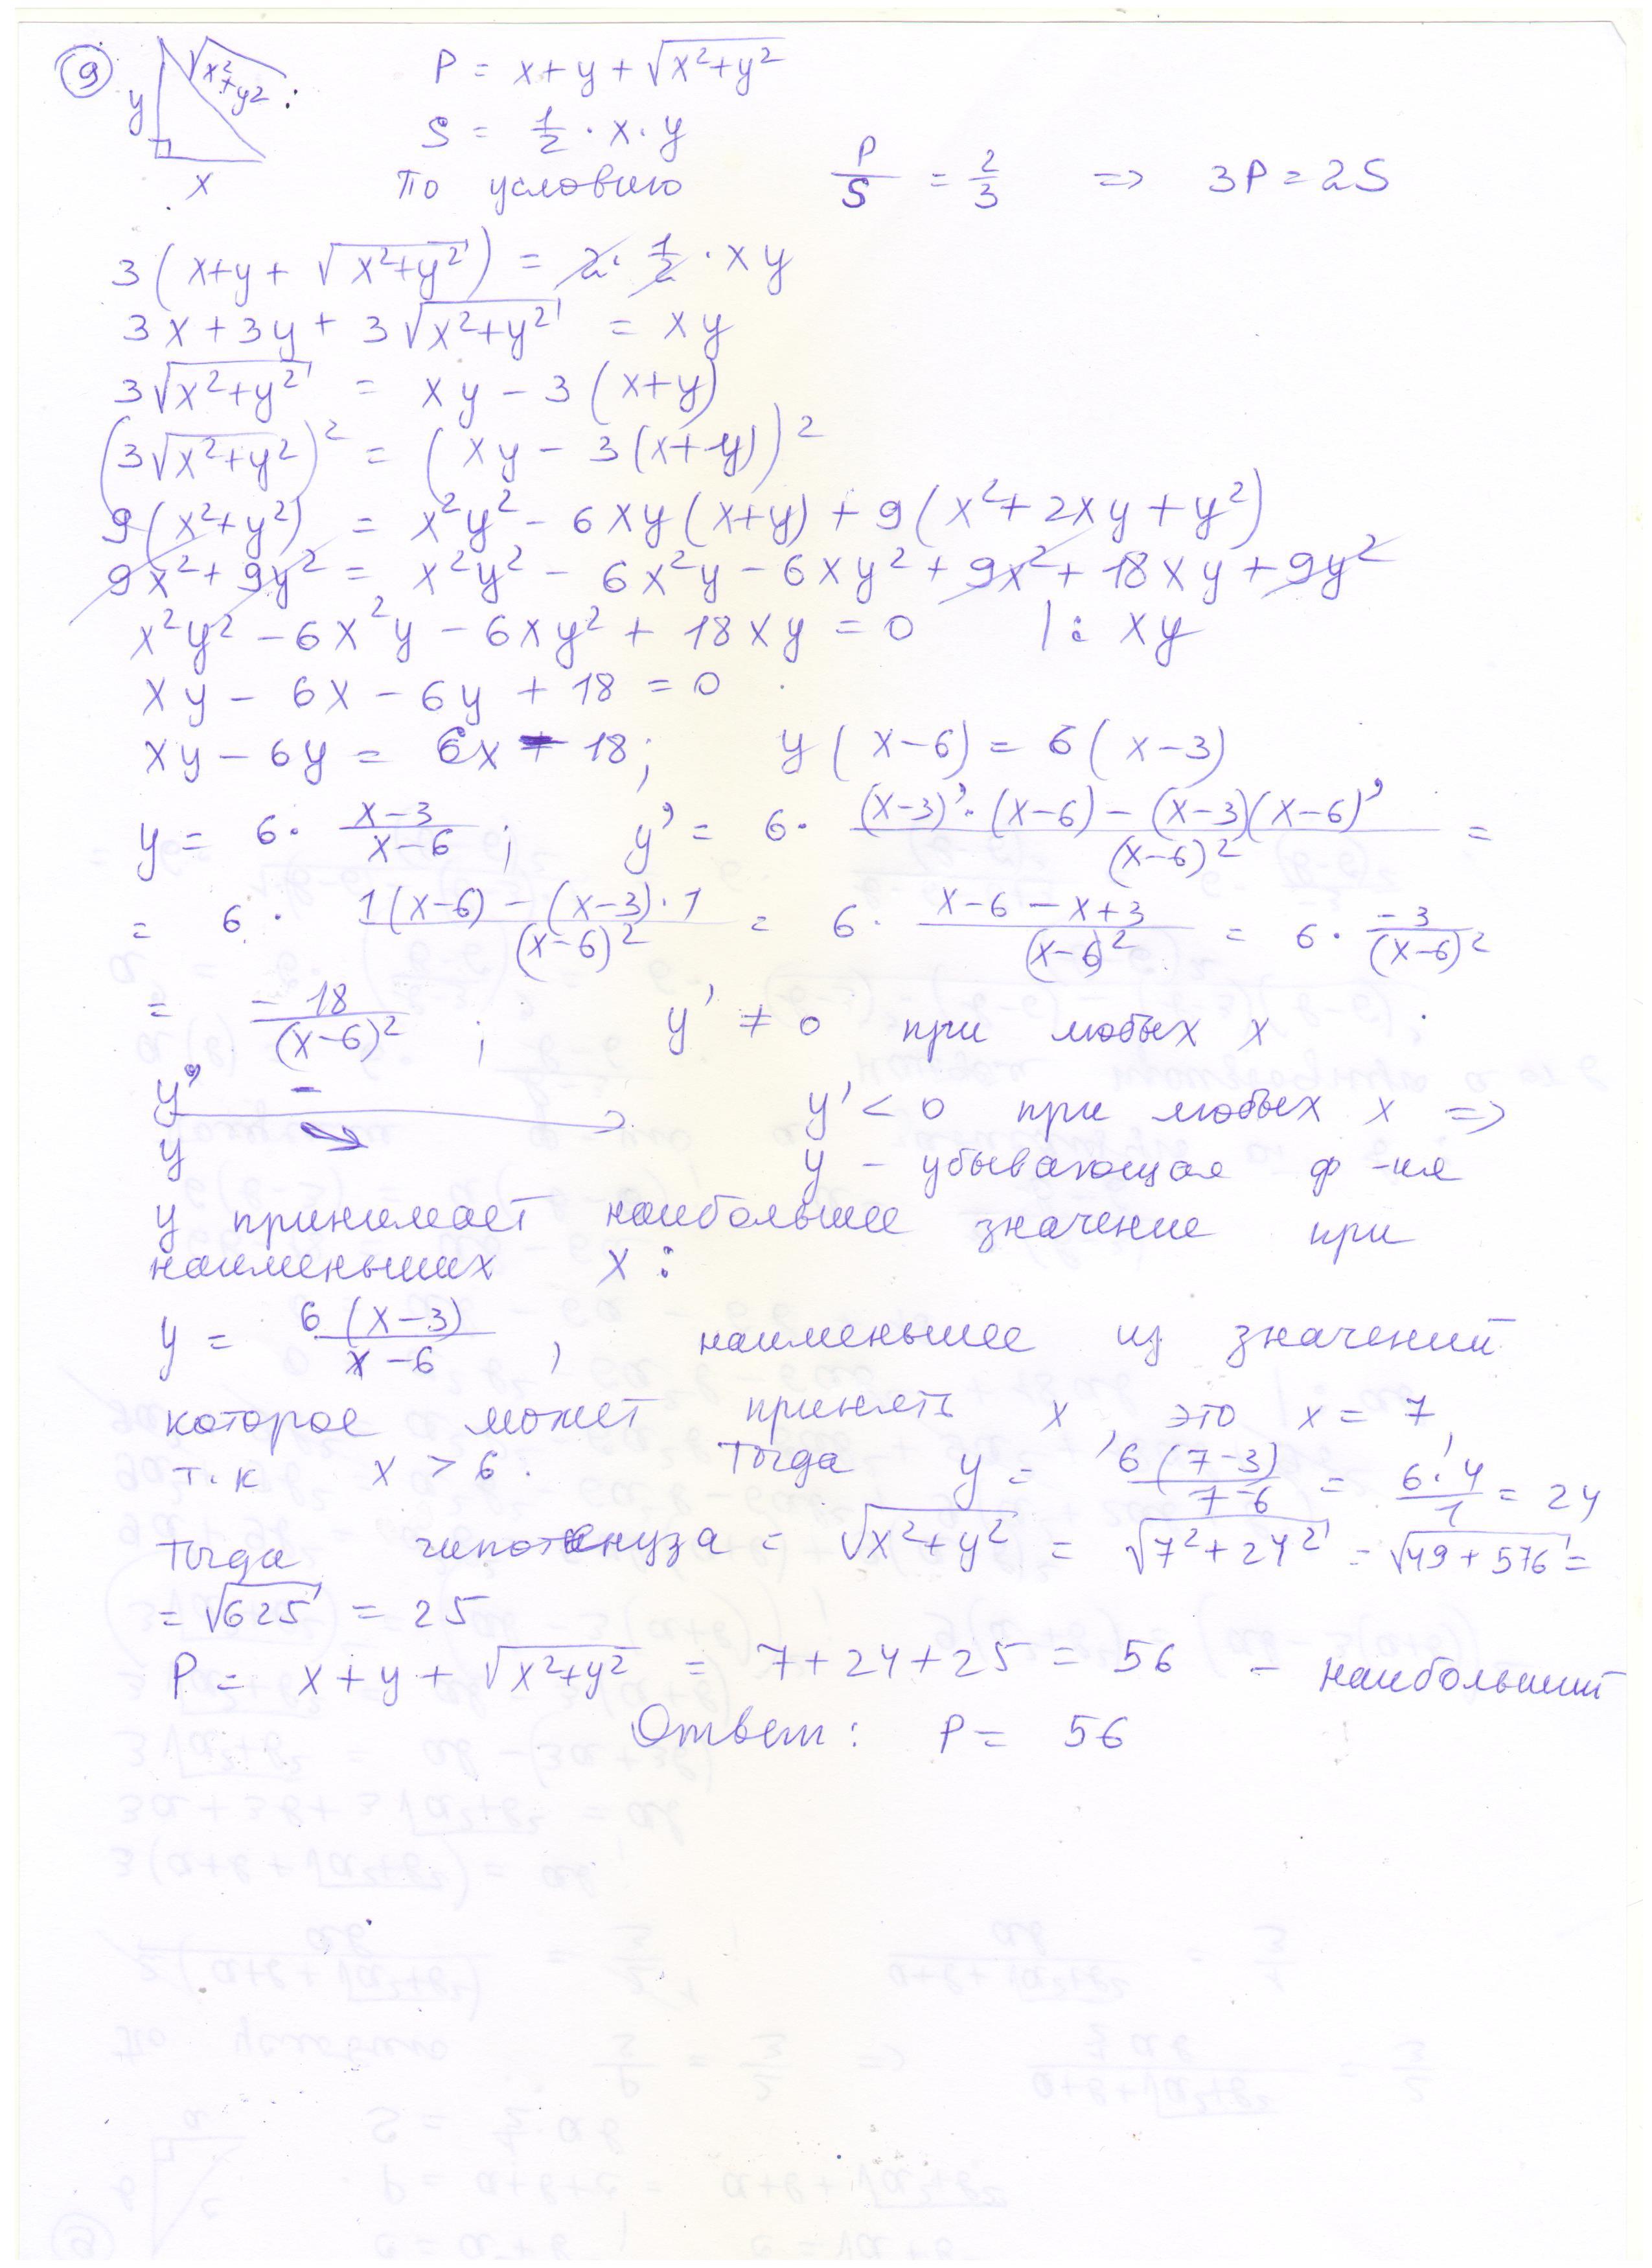 9
y √x²+y² x
P = x+y+√x²+y²
S = 1/2 · x · y
По условию P/S = 2/3 => 3P = 2S
3(x+y+√x²+y²) = 2 · 1/2 · xy
3x+3y+3√x²+y² = xy
3√x²+y² = xy - 3(x+y)
(3√x²+y²)² = (xy - 3(x+y))²
9(x²+y²) = x²y² - 6xy(x+y) + 9(x²+2xy+y²)
9x²+9y² = x²y² - 6x²y - 6xy² + 9x² + 18xy + 9y²
x²y² - 6x²y - 6xy² + 18xy = 0 |: xy
xy - 6x - 6y + 18 = 0
xy - 6y = 6x - 18; y(x-6) = 6(x-3)
y = 6 · (x-3)/(x-6); y' = 6 · ((x-3)'·(x-6) - (x-3)(x-6)')/(x-6)² =
= 6 · (1(x-6) - (x-3)·1)/(x-6)² = 6 · (x-6-x+3)/(x-6)² = 6 · -3/(x-6)²
= -18/(x-6)²; y' ≠ 0 при любых x
y' -
y
y' < 0 при любых x =>
y - убывающая ф-ия
y принимает наибольшее значение при
наименьших x:
y = 6(x-3)/(x-6), наименьшее из значений
которое может принять x, это x = 7,
т.к x > 6. Тогда y = 6(7-3)/(7-6) = 6·4/1 = 24
Тогда гипотенуза = √x²+y² = √7²+24² = √49+576 =
= √625 = 25
P = x+y+√x²+y² = 7+24+25 = 56 - наибольший
Ответ: P = 56